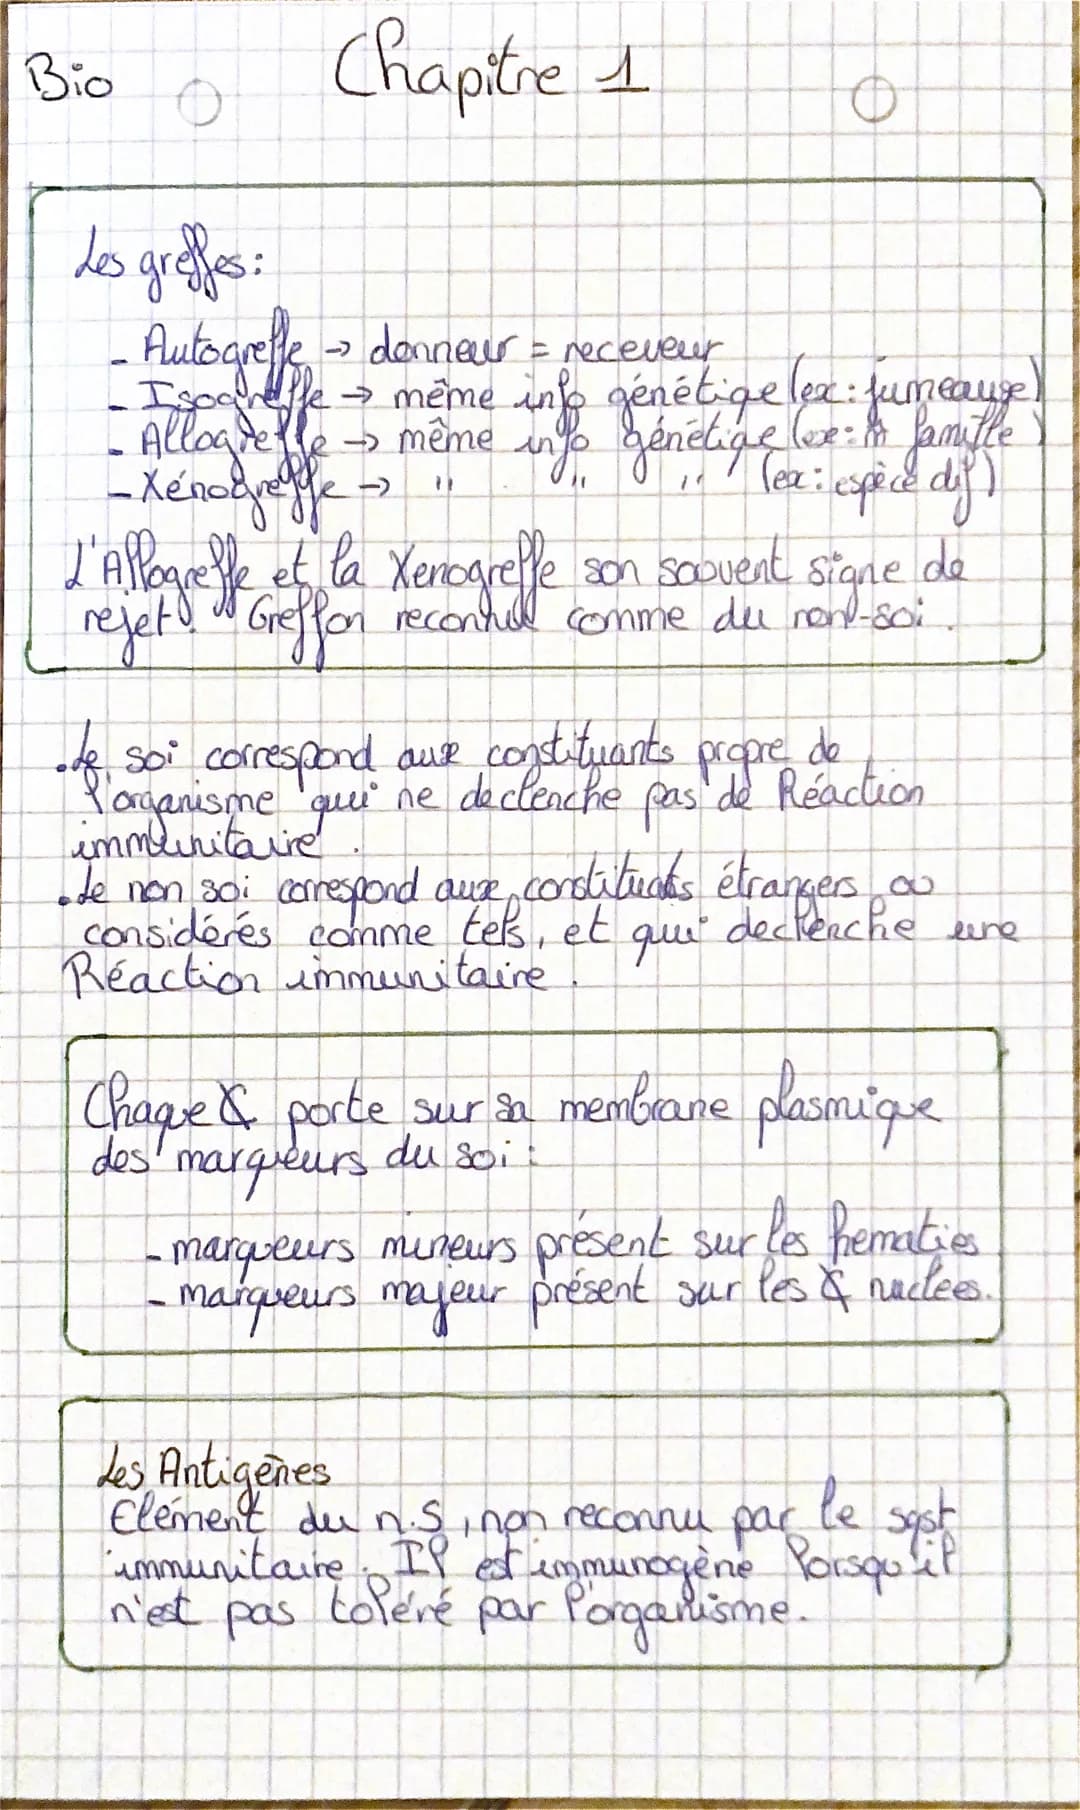 Bio
Chapitre 1
Les greffes:
- Autogreffe → donneur = receveur
- Isogreffe → même info génétique (ex: jumeauxe)
- Allogreffe → même info génétique (ex: famille)
- Xénogreffe → " " " (ex: espèce dif)
L'Allogreffe et la Xenogreffe son souvent signe de
rejet. Greffon reconnue comme du non-soi.
. Le soi correspond aux constituants propre de
l'organisme qui ne declenche pas de Réaction
immunitaire.
. Le non soi correspond aux constituats étrangers ou
considérés comme tels, et qui declenche une
Réaction immunitaire.
Chaque porte sur sa membrane plasmique
des marqueurs du soi:
- marqueurs mineurs présent sur les hematies
- marqueurs majeur présent sur les nuclees.
Les Antigènes
Elément du n.S, non reconnu par le syst
immunitaire. Il est immunogène lorsqu'il
n'est pas toléré par l'organisme.